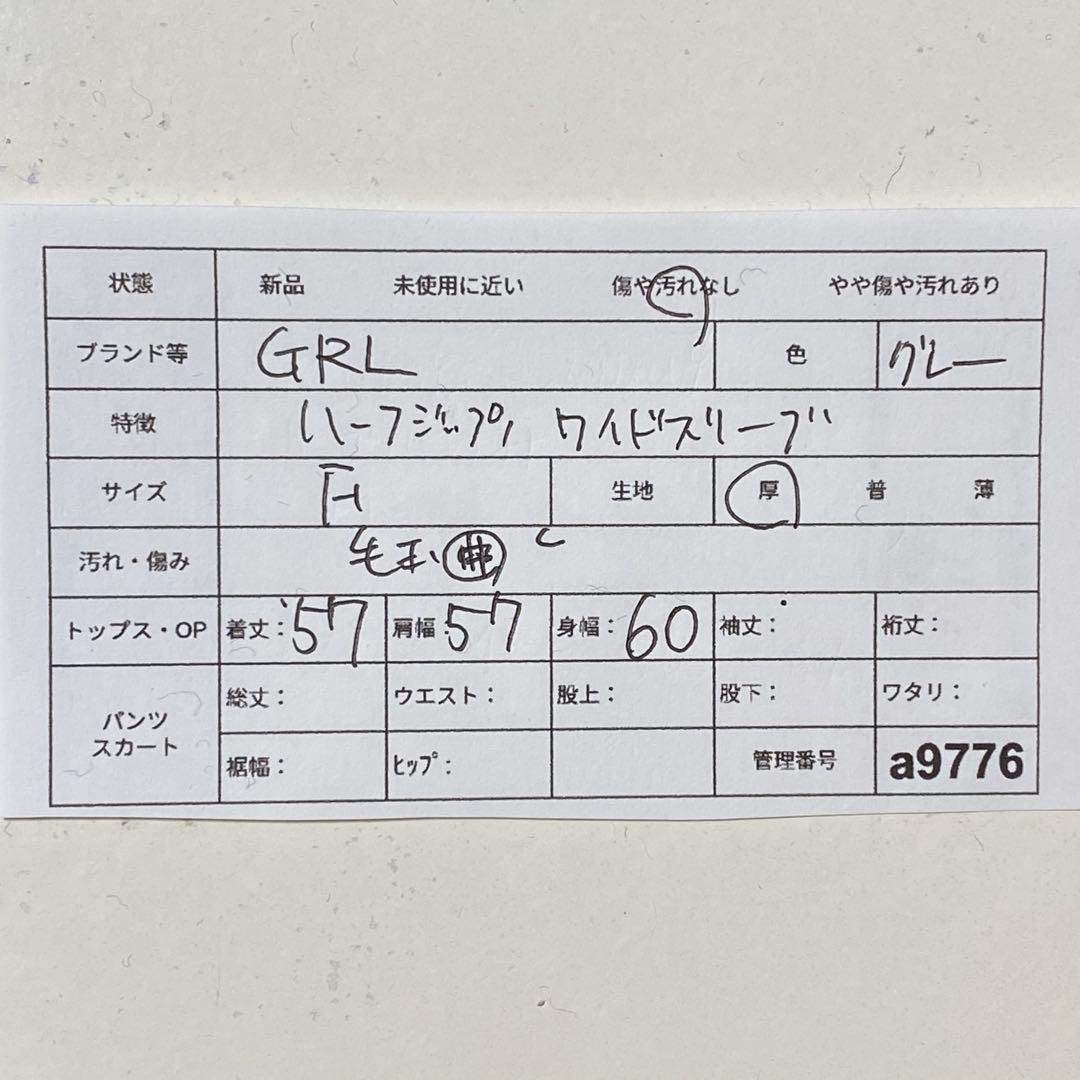 状態 新品 未使用に近い 傷や汚れなし やや傷や汚れあり
ブランド等 GRL 色 グレー
特徴 ハーフジップ ワイドスリーブ
サイズ F 生地 厚 普 薄
汚れ・傷み 毛玉
トップス・OP 着丈：57 肩幅：57 身幅：60 袖丈： 裄丈：
パンツ スカート 総丈： ウエスト： 股上： 股下： ワタリ：
裾幅： ﾋｯﾌﾟ： 管理番号 a9776